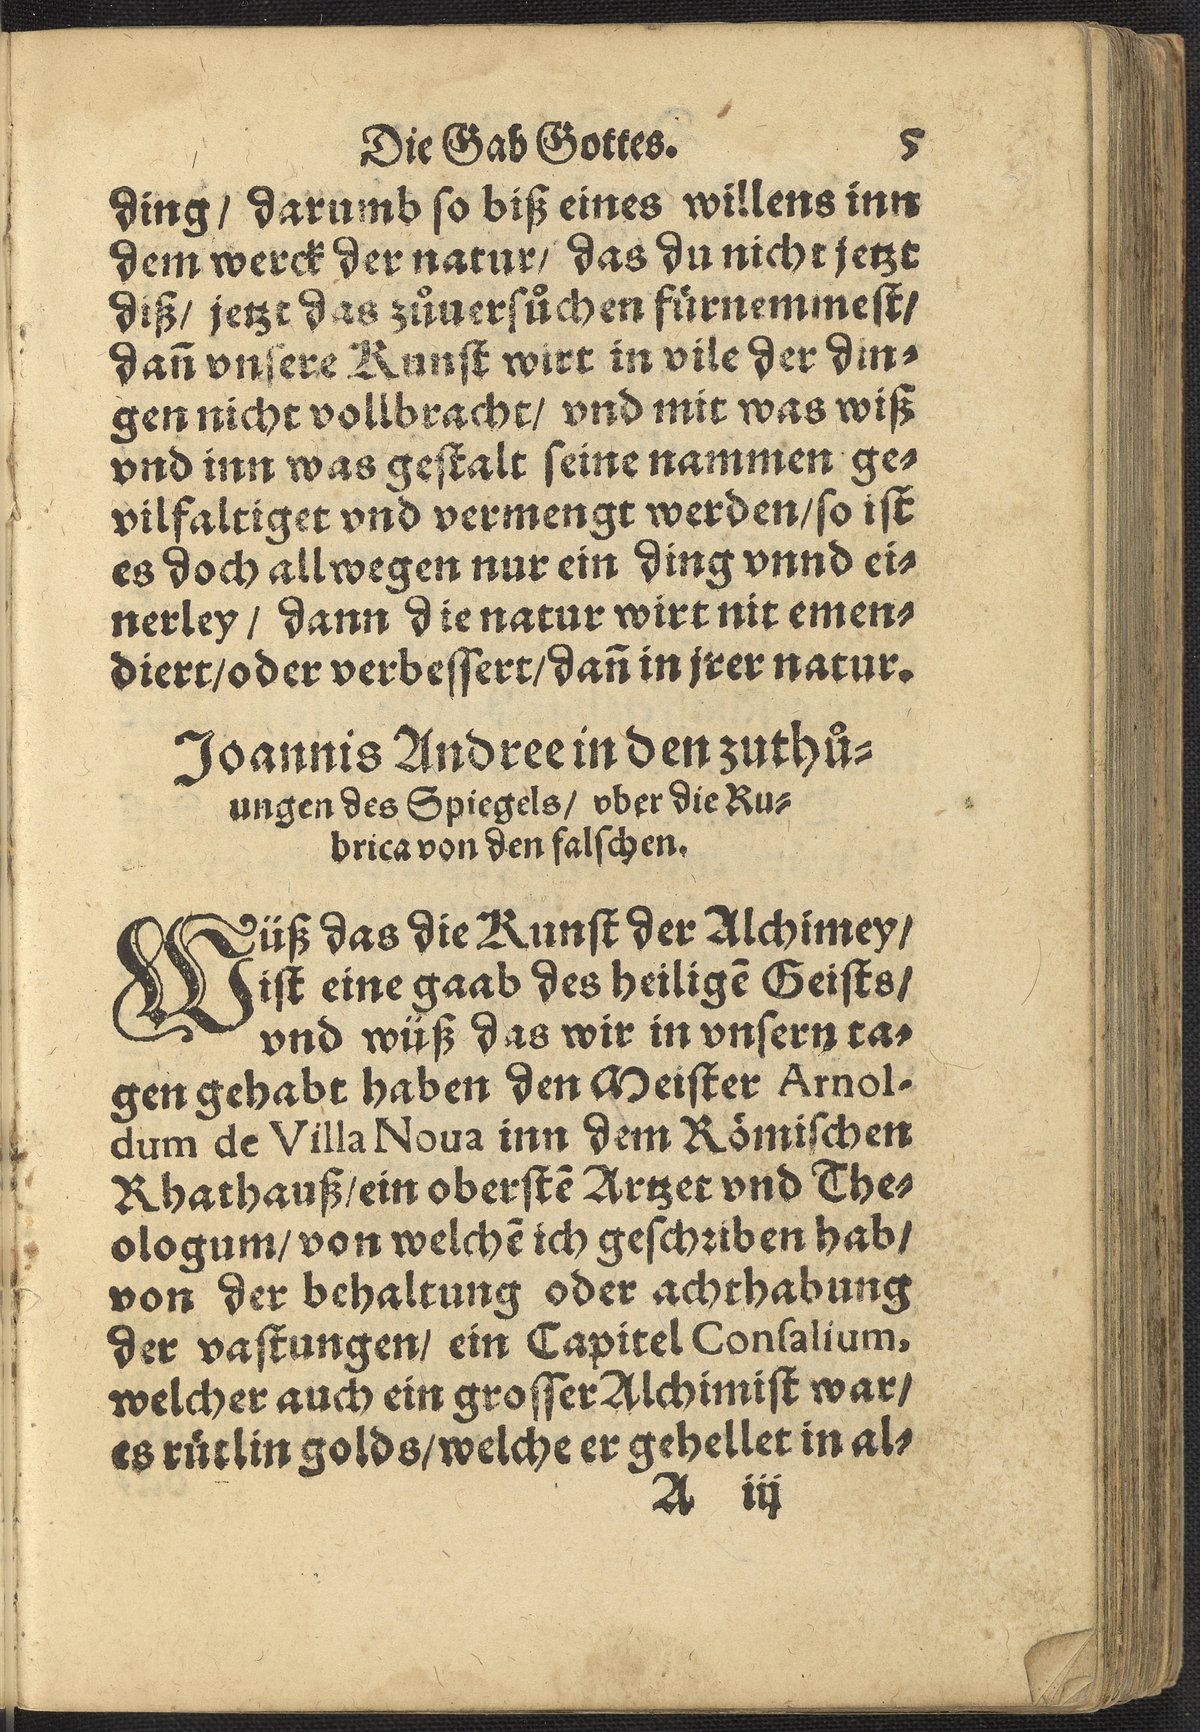 Die Gab Gottes. 5
ding/ darumb so biß eines willens inn
dem werck der natur/ das du nicht jetzt
diß/ jetzt das zůuersůchen fürnemmest/
dañ vnsere Kunst wirt in vile der din⸗
gen nicht vollbracht/ vnd mit was wiß
vnd inn was gestalt seine nammen ge⸗
vilfaltiget vnd vermengt werden/so ist
es doch allwegen nur ein ding vnnd ei⸗
nerley/ dann die natur wirt nit emen⸗
diert/oder verbessert/dañ in jrer natur.
Joannis Andree in den zuthů⸗
ungen des Spiegels/ vber die Ru⸗
brica von den falschen.
Wüß das die Kunst der Alchimey/
ist eine gaab des heiligē Geists/
vnd wüß das wir in vnsern ta⸗
gen gehabt haben den Meister Arnol-
dum de Villa Noua inn dem Römischen
Rhathauß/ein oberstē Artzet vnd The⸗
ologum/von welchē ich geschriben hab/
von der behaltung oder achthabung
der vastungen/ ein Capitel Consalium.
welcher auch ein grosser Alchimist war/
es rütlin golds/welche er gehellet in al⸗
A iij